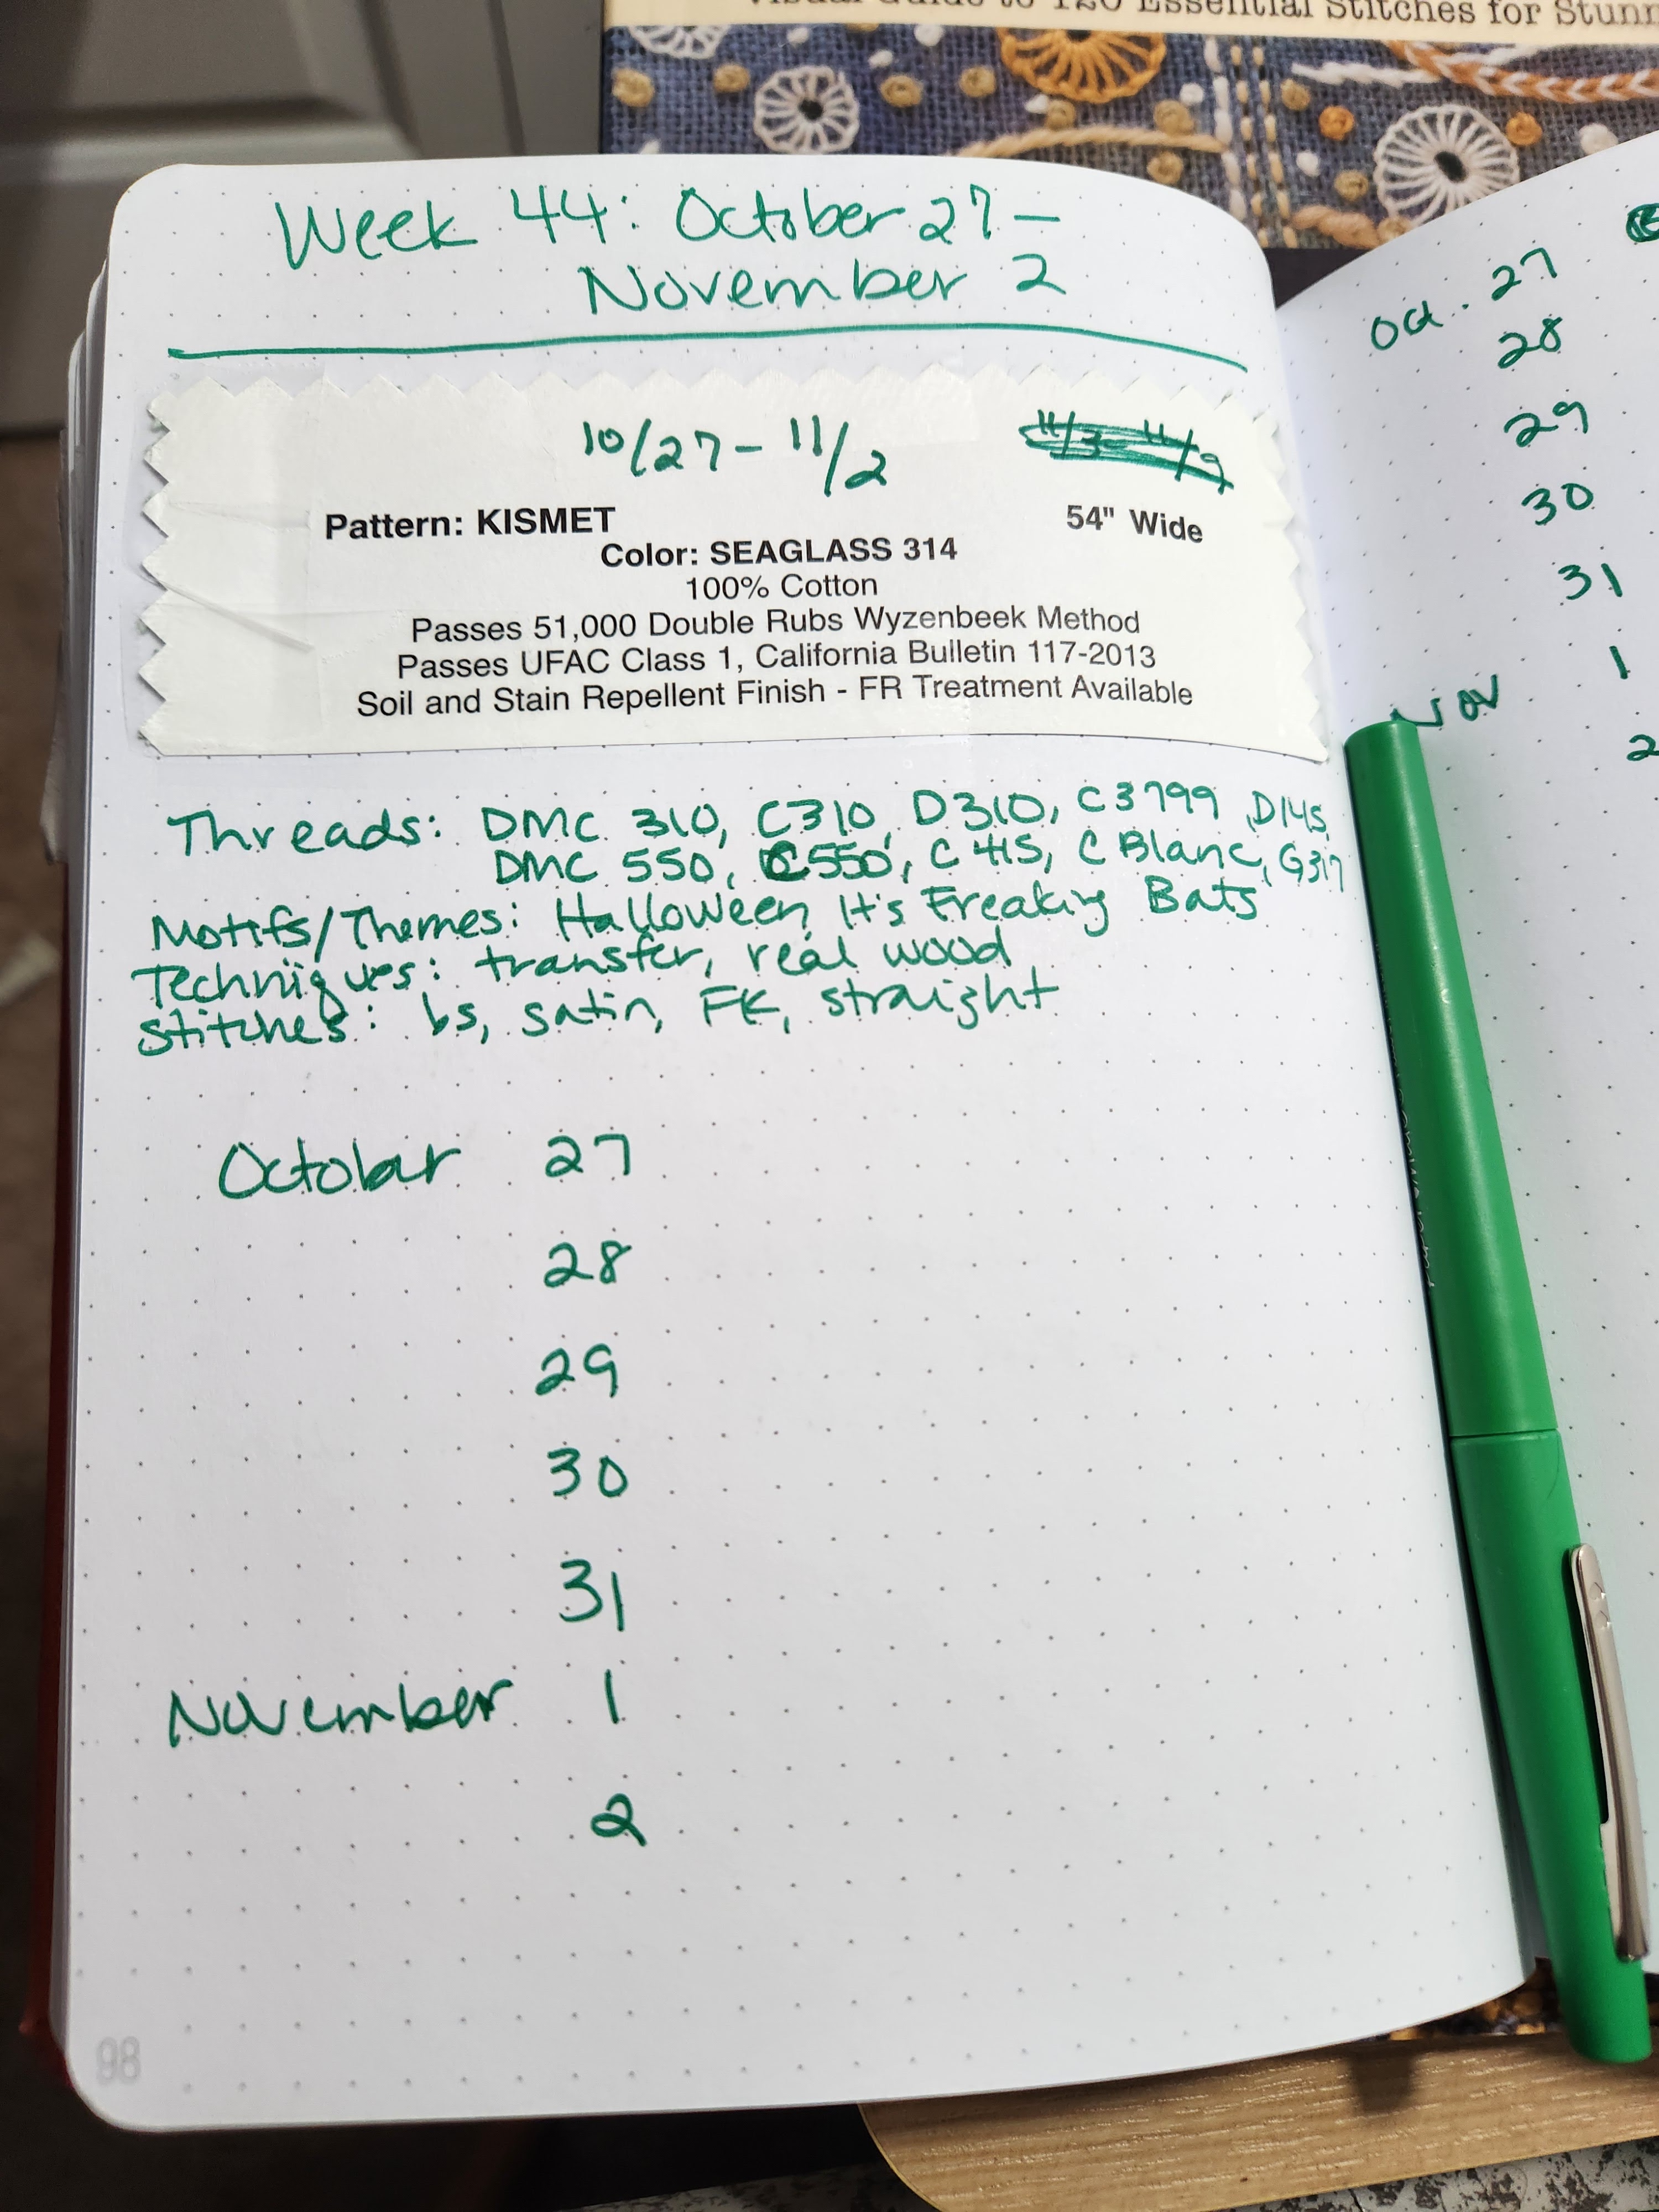 Visual Guide to 120 Essential Stitches for Stunn
Week 44: October 27 –
November 2
10/27 – 11/2
Pattern: KISMET 54" Wide
Color: SEAGLASS 314
100% Cotton
Passes 51,000 Double Rubs Wyzenbeek Method
Passes UFAC Class 1, California Bulletin 117-2013
Soil and Stain Repellent Finish - FR Treatment Available
Threads: DMC 310, C310, D310, C3799, D145,
DMC 550, C550, C415, C Blanc, G317
Motifs/Themes: Halloween, It's Freaking Bats
Techniques: transfer, real wood
Stitches: bs, satin, FK, straight
October 27
28
29
30
31
November 1
2
98
Oct. 27
28
29
30
31
Nov 1
2